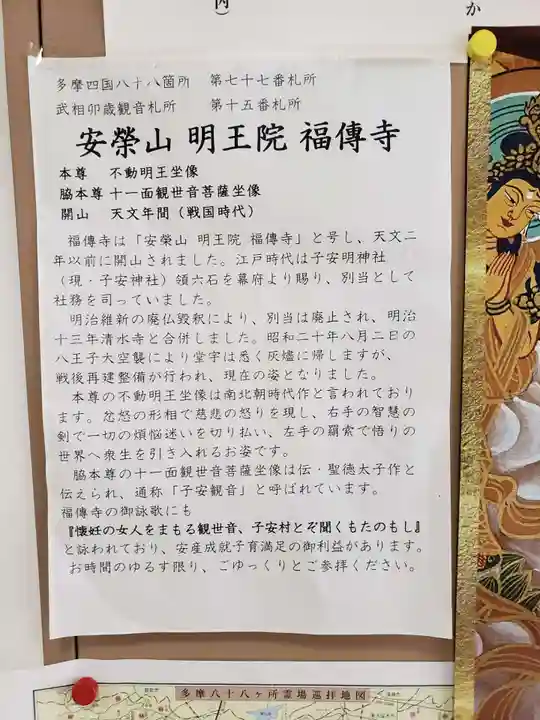 内)
か
多摩四国八十八箇所　第七十七番札所
武相卯歳観音札所　第十五番札所
安榮山 明王院 福傳寺
本尊　不動明王坐像
脇本尊 十一面観世音菩薩坐像
開山　天文年間（戦国時代）
福傳寺は「安榮山 明王院 福傳寺」と号し、天文二
年以前に開山されました。江戸時代は子安明神社
（現・子安神社）領六石を幕府より賜り、別当として
社務を司っていました。
明治維新の廃仏毀釈により、別当は廃止され、明治
十三年清水寺と合併しました。昭和二十年八月二日の
八王子大空襲により堂宇は悉く灰燼に帰しますが、
戦後再建整備が行われ、現在の姿となりました。
本尊の不動明王坐像は南北朝時代作と言われており
ます。忿怒の形相で慈悲の怒りを現し、右手の智慧の
剣で一切の煩悩迷いを切り払い、左手の羂索で悟りの
世界へ衆生を引き入れるお姿です。
脇本尊の十一面観世音菩薩坐像は伝・聖徳太子作と
伝えられ、通称「子安観音」と呼ばれています。
福傳寺の御詠歌にも
『懐妊の女人をまもる観世音、子安村とぞ聞くもたのもし』
と詠われており、安産成就子育満足の御利益があります。
お時間のゆるす限り、ごゆっくりとご参拝ください。
多摩八十八ヶ所霊場巡拝地図